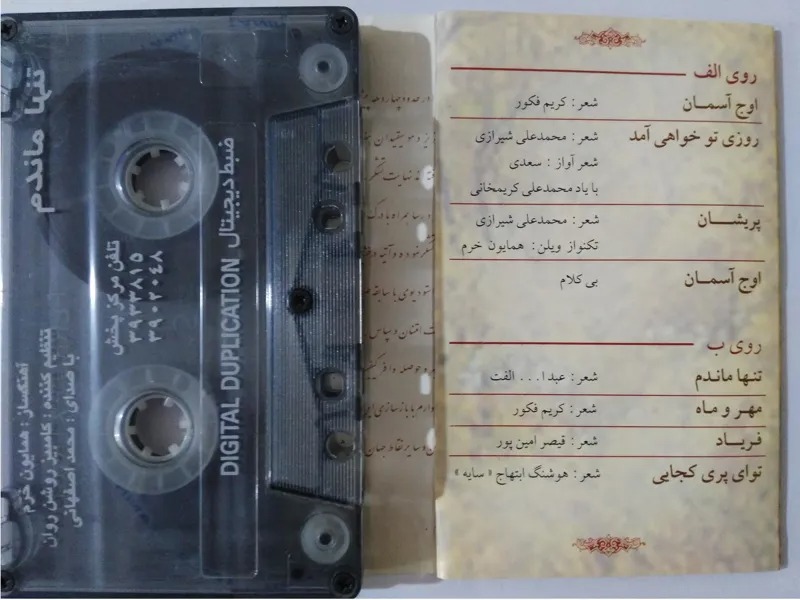 تنها ماندم
ضبط دیجیتال
DIGITAL DUPLICATION
تلفن مرکز پخش
۳۹۳۳۸۱۵
۳۹۰۲۰۴۸
آهنگساز : همایون خرم
تنظیم کننده : کامبیز روشن روان
با صدای : محمد اصفهانی
روی الف
اوج آسمـان شعر : کریم فکور
روزی تو خواهی آمد شعر : محمدعلی شیرازی
شعر آواز : سعدی
با یاد محمدعلی کریمخانی
پریشـان شعر : محمدعلی شیرازی
تکنواز ویلن : همایون خرم
اوج آسمـان بی کلام
روی ب
تنها ماندم شعر : عبدا... الفت
مهر و ماه شعر : کریم فکور
فریـاد شعر : قیصر امین پور
توای پری کجایی شعر : هوشنگ ابتهاج « سایه »